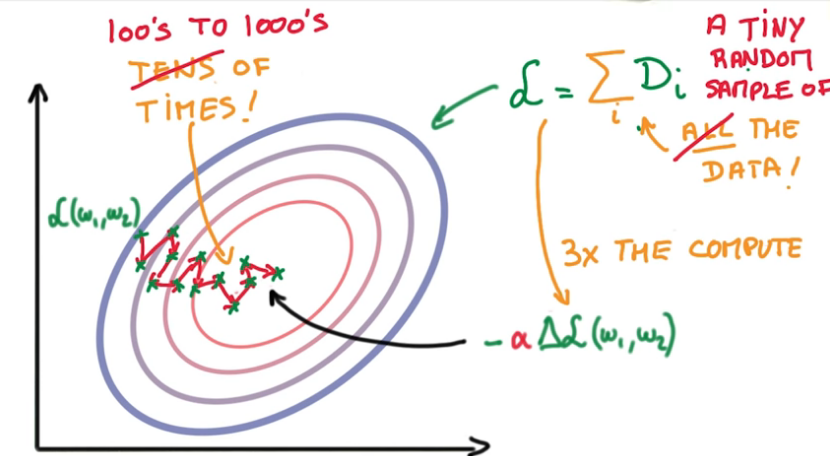 100's TO 1000's
TENS OF
TIMES!
ℒ = Σ Dᵢ
i
A TINY
RANDOM
SAMPLE OF
ALL THE
DATA!
ℒ(ω₁,ω₂)
3x THE COMPUTE
- α Δℒ(ω₁,ω₂)